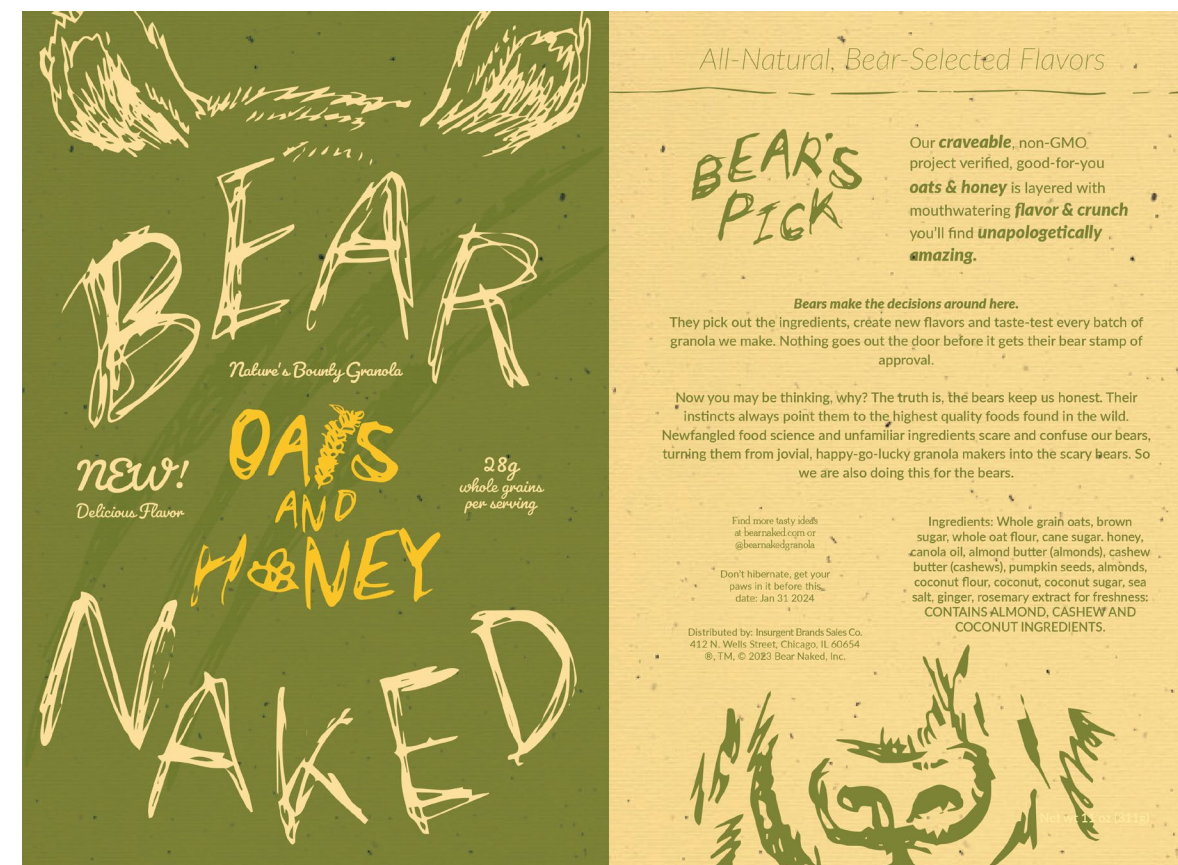 BEAR
Nature's Bounty Granola
OATS
AND
HONEY
NEW!
Delicious Flavor
28g
whole grains
per serving
NAKED
All-Natural, Bear-Selected Flavors
BEAR'S
PICK
Our craveable, non-GMO
project verified, good-for-you
oats & honey is layered with
mouthwatering flavor & crunch
you'll find unapologetically
amazing.
Bears make the decisions around here.
They pick out the ingredients, create new flavors and taste-test every batch of
granola we make. Nothing goes out the door before it gets their bear stamp of
approval.
Now you may be thinking, why? The truth is, the bears keep us honest. Their
instincts always point them to the highest quality foods found in the wild.
Newfangled food science and unfamiliar ingredients scare and confuse our bears,
turning them from jovial, happy-go-lucky granola makers into the scary bears. So
we are also doing this for the bears.
Find more tasty ideas
at bearnaked.com or
@bearnakedgranola
Don't hibernate, get your
paws in it before this
date: Jan 31 2024
Distributed by: Insurgent Brands Sales Co.
412 N. Wells Street, Chicago, IL 60654
®, TM, © 2023 Bear Naked, Inc.
Ingredients: Whole grain oats, brown
sugar, whole oat flour, cane sugar. honey,
canola oil, almond butter (almonds), cashew
butter (cashews), pumpkin seeds, almonds,
coconut flour, coconut, coconut sugar, sea
salt, ginger, rosemary extract for freshness:
CONTAINS ALMOND, CASHEW AND
COCONUT INGREDIENTS.
Net wt 11 oz (311g)